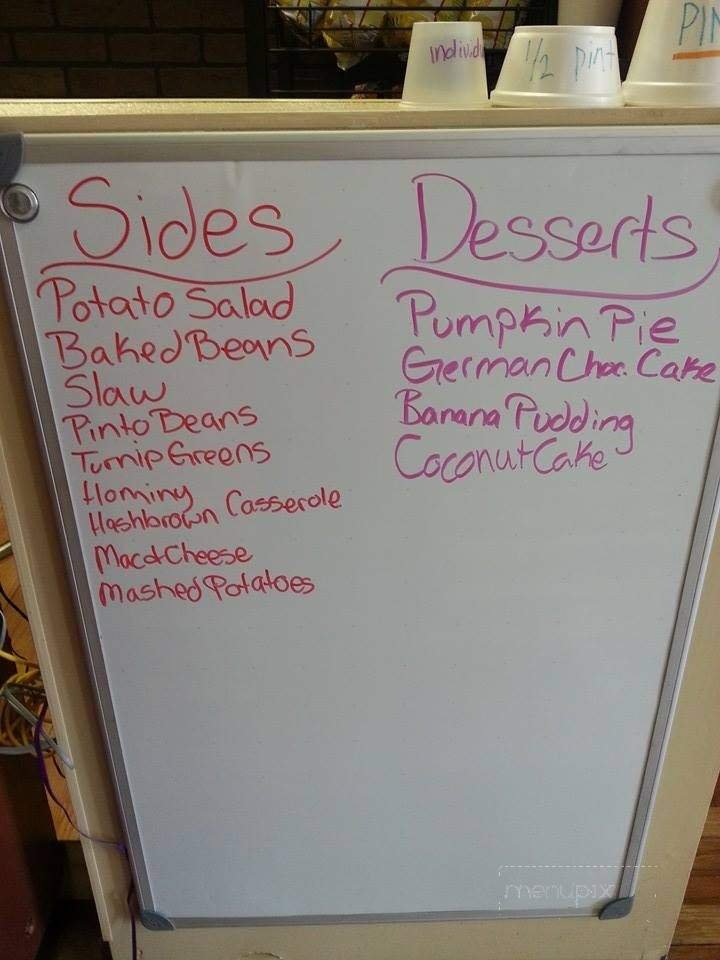 individu
1/2 pint
PIN
Sides
Potato Salad
Baked Beans
Slaw
Pinto Beans
Turnip Greens
Hominy
Hashbrown Casserole
Mac & Cheese
Mashed Potatoes
Desserts
Pumpkin Pie
German Choc. Cake
Banana Pudding
Coconut Cake
menupix